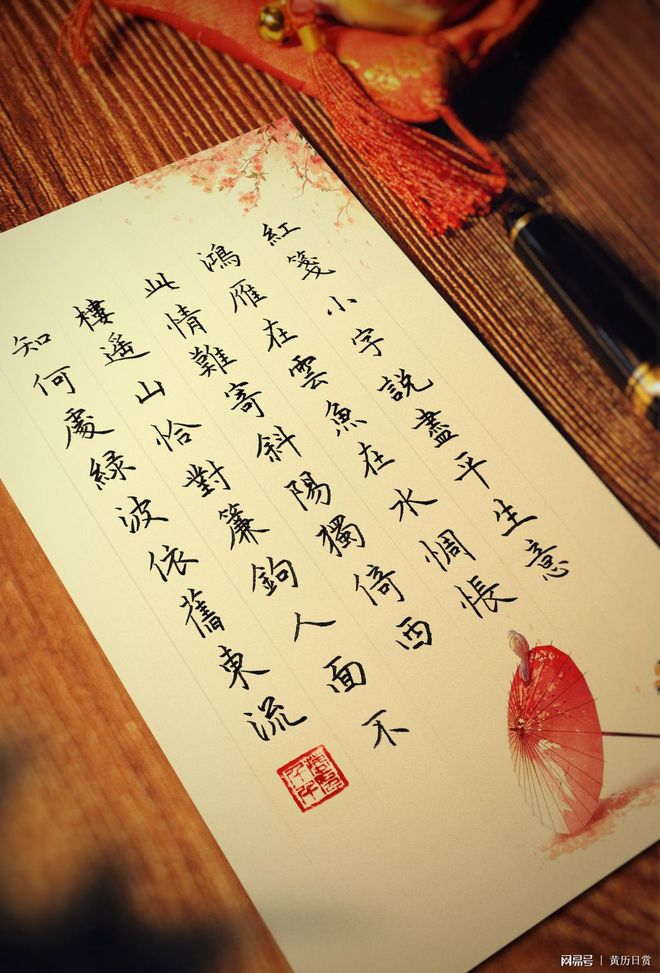 紅箋小字說盡平生意
鴻雁在雲魚在水惆悵
此情難寄斜陽獨倚西
樓遥山恰對簾鉤人面不
知何處綠波依舊東流
网易号 | 黄历日赏